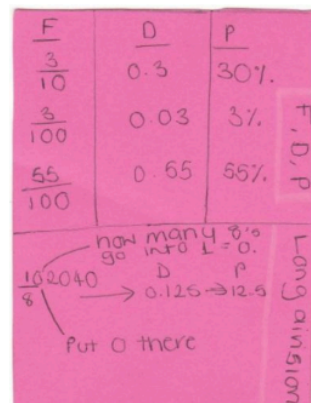 F D P
3/10 0.3 30%
3/100 0.03 3%
55/100 0.55 55%
F, D, P
how many 8's
go into 1 = 0.
D P
102040
8 → 0.125 → 12.5
Put 0 there
Long division